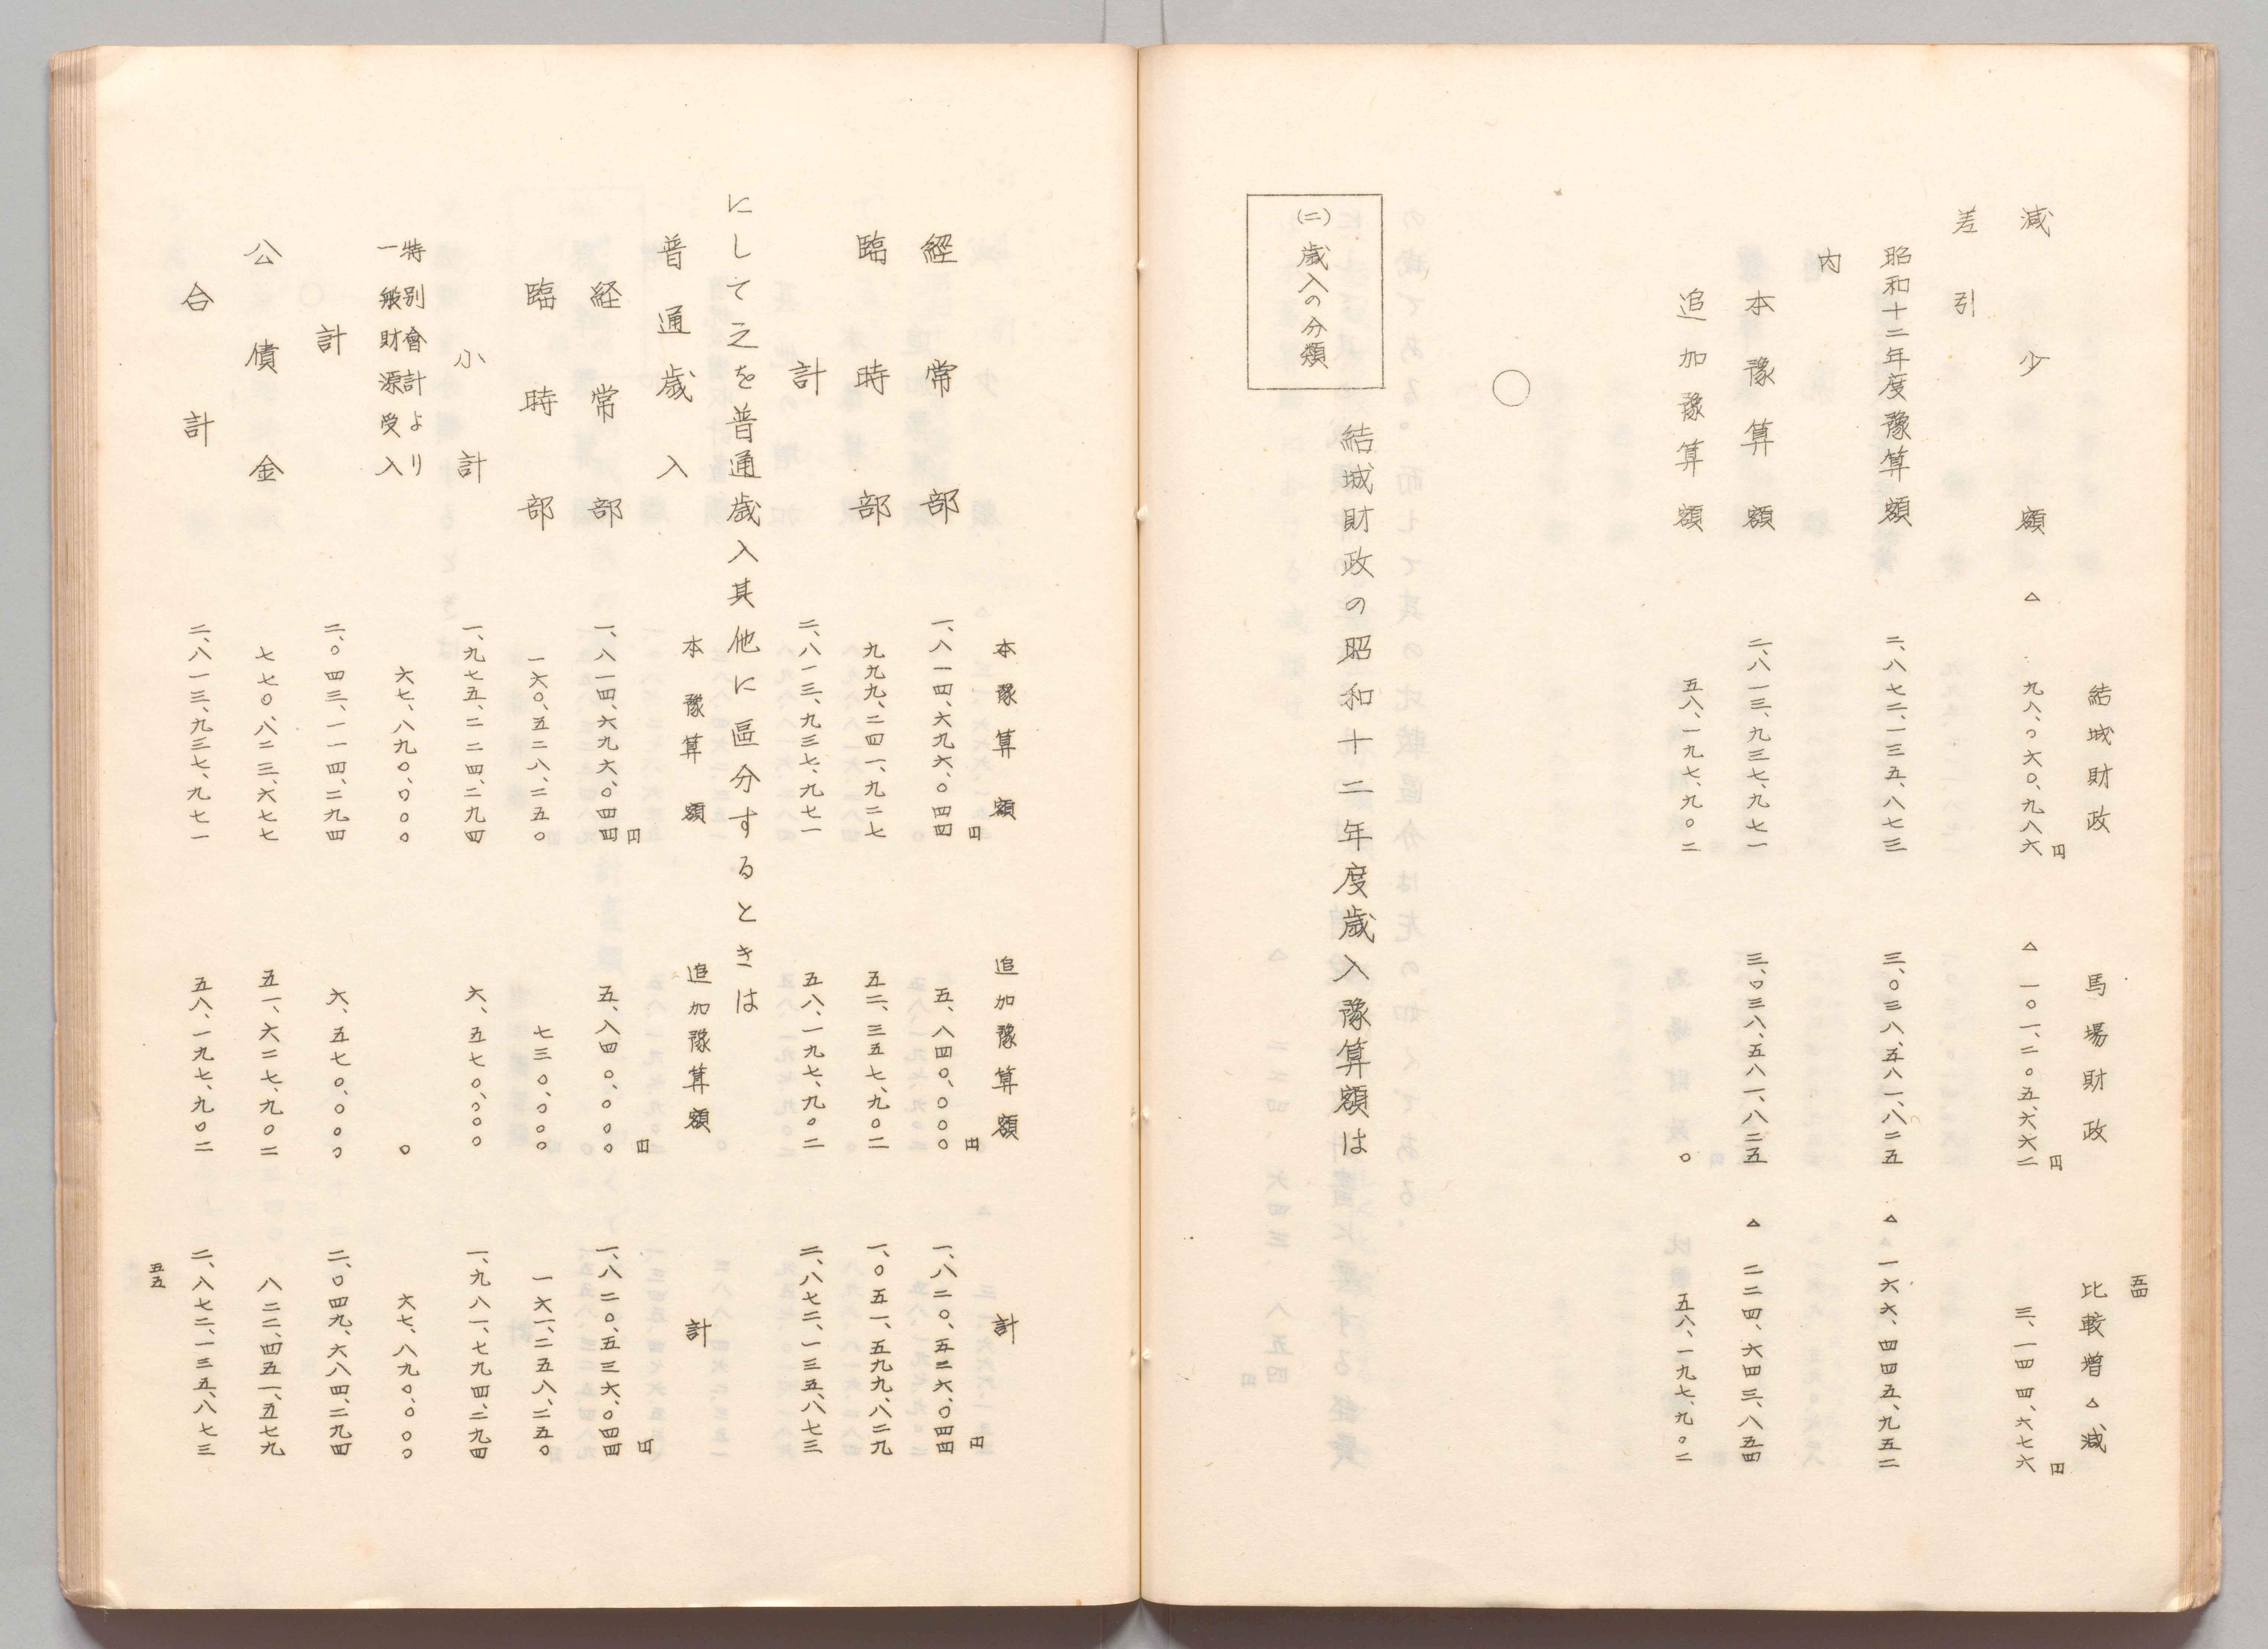 五四
結城財政　馬場財政　比較増△減
減少額　△　九八、〇六〇、九八六円　△　一〇一、二〇五、六六二円　三、一四四、六七六円
差引
昭和十二年度豫算額　二、八七二、一三五、八七三　三、〇三八、五八一、八二五　△　一六六、四四五、九五二
内
本豫算額　二、八一三、九三七、九七一　三、〇三八、五八一、八二五　△　二二四、六四三、八五四
追加豫算額　五八、一九七、九〇二　〇　五八、一九七、九〇二
○
(二)歳入の分類
結城財政の昭和十二年度歳入豫算額は
本豫算額　追加豫算額　計
經常部　一、八一四、六九六、〇四四円　五、八四〇、〇〇〇円　一、八二〇、五三六、〇四四円
臨時部　九九九、二四一、九二七　五二、三五七、九〇二　一、〇五一、五九九、八二九
計　二、八一三、九三七、九七一　五八、一九七、九〇二　二、八七二、一三五、八七三
にして之を普通歳入其他に區分するときは
普通歳入　本豫算額　追加豫算額　計
経常部　一、八一四、六九六、〇四四円　五、八四〇、〇〇〇円　一、八二〇、五三六、〇四四円
臨時部　一六〇、五二八、二五〇　七三〇、〇〇〇　一六一、二五八、二五〇
小計　一、九七五、二二四、二九四　六、五七〇、〇〇〇　一、九八一、七九四、二九四
特別會計より
一般財源受入　六七、八九〇、〇〇〇　〇　六七、八九〇、〇〇〇
計　二、〇四三、一一四、二九四　六、五七〇、〇〇〇　二、〇四九、六八四、二九四
公債金　七七〇、八二三、六七七　五一、六二七、九〇二　八二二、四五一、五七九
合計　二、八一三、九三七、九七一　五八、一九七、九〇二　二、八七二、一三五、八七三
五五